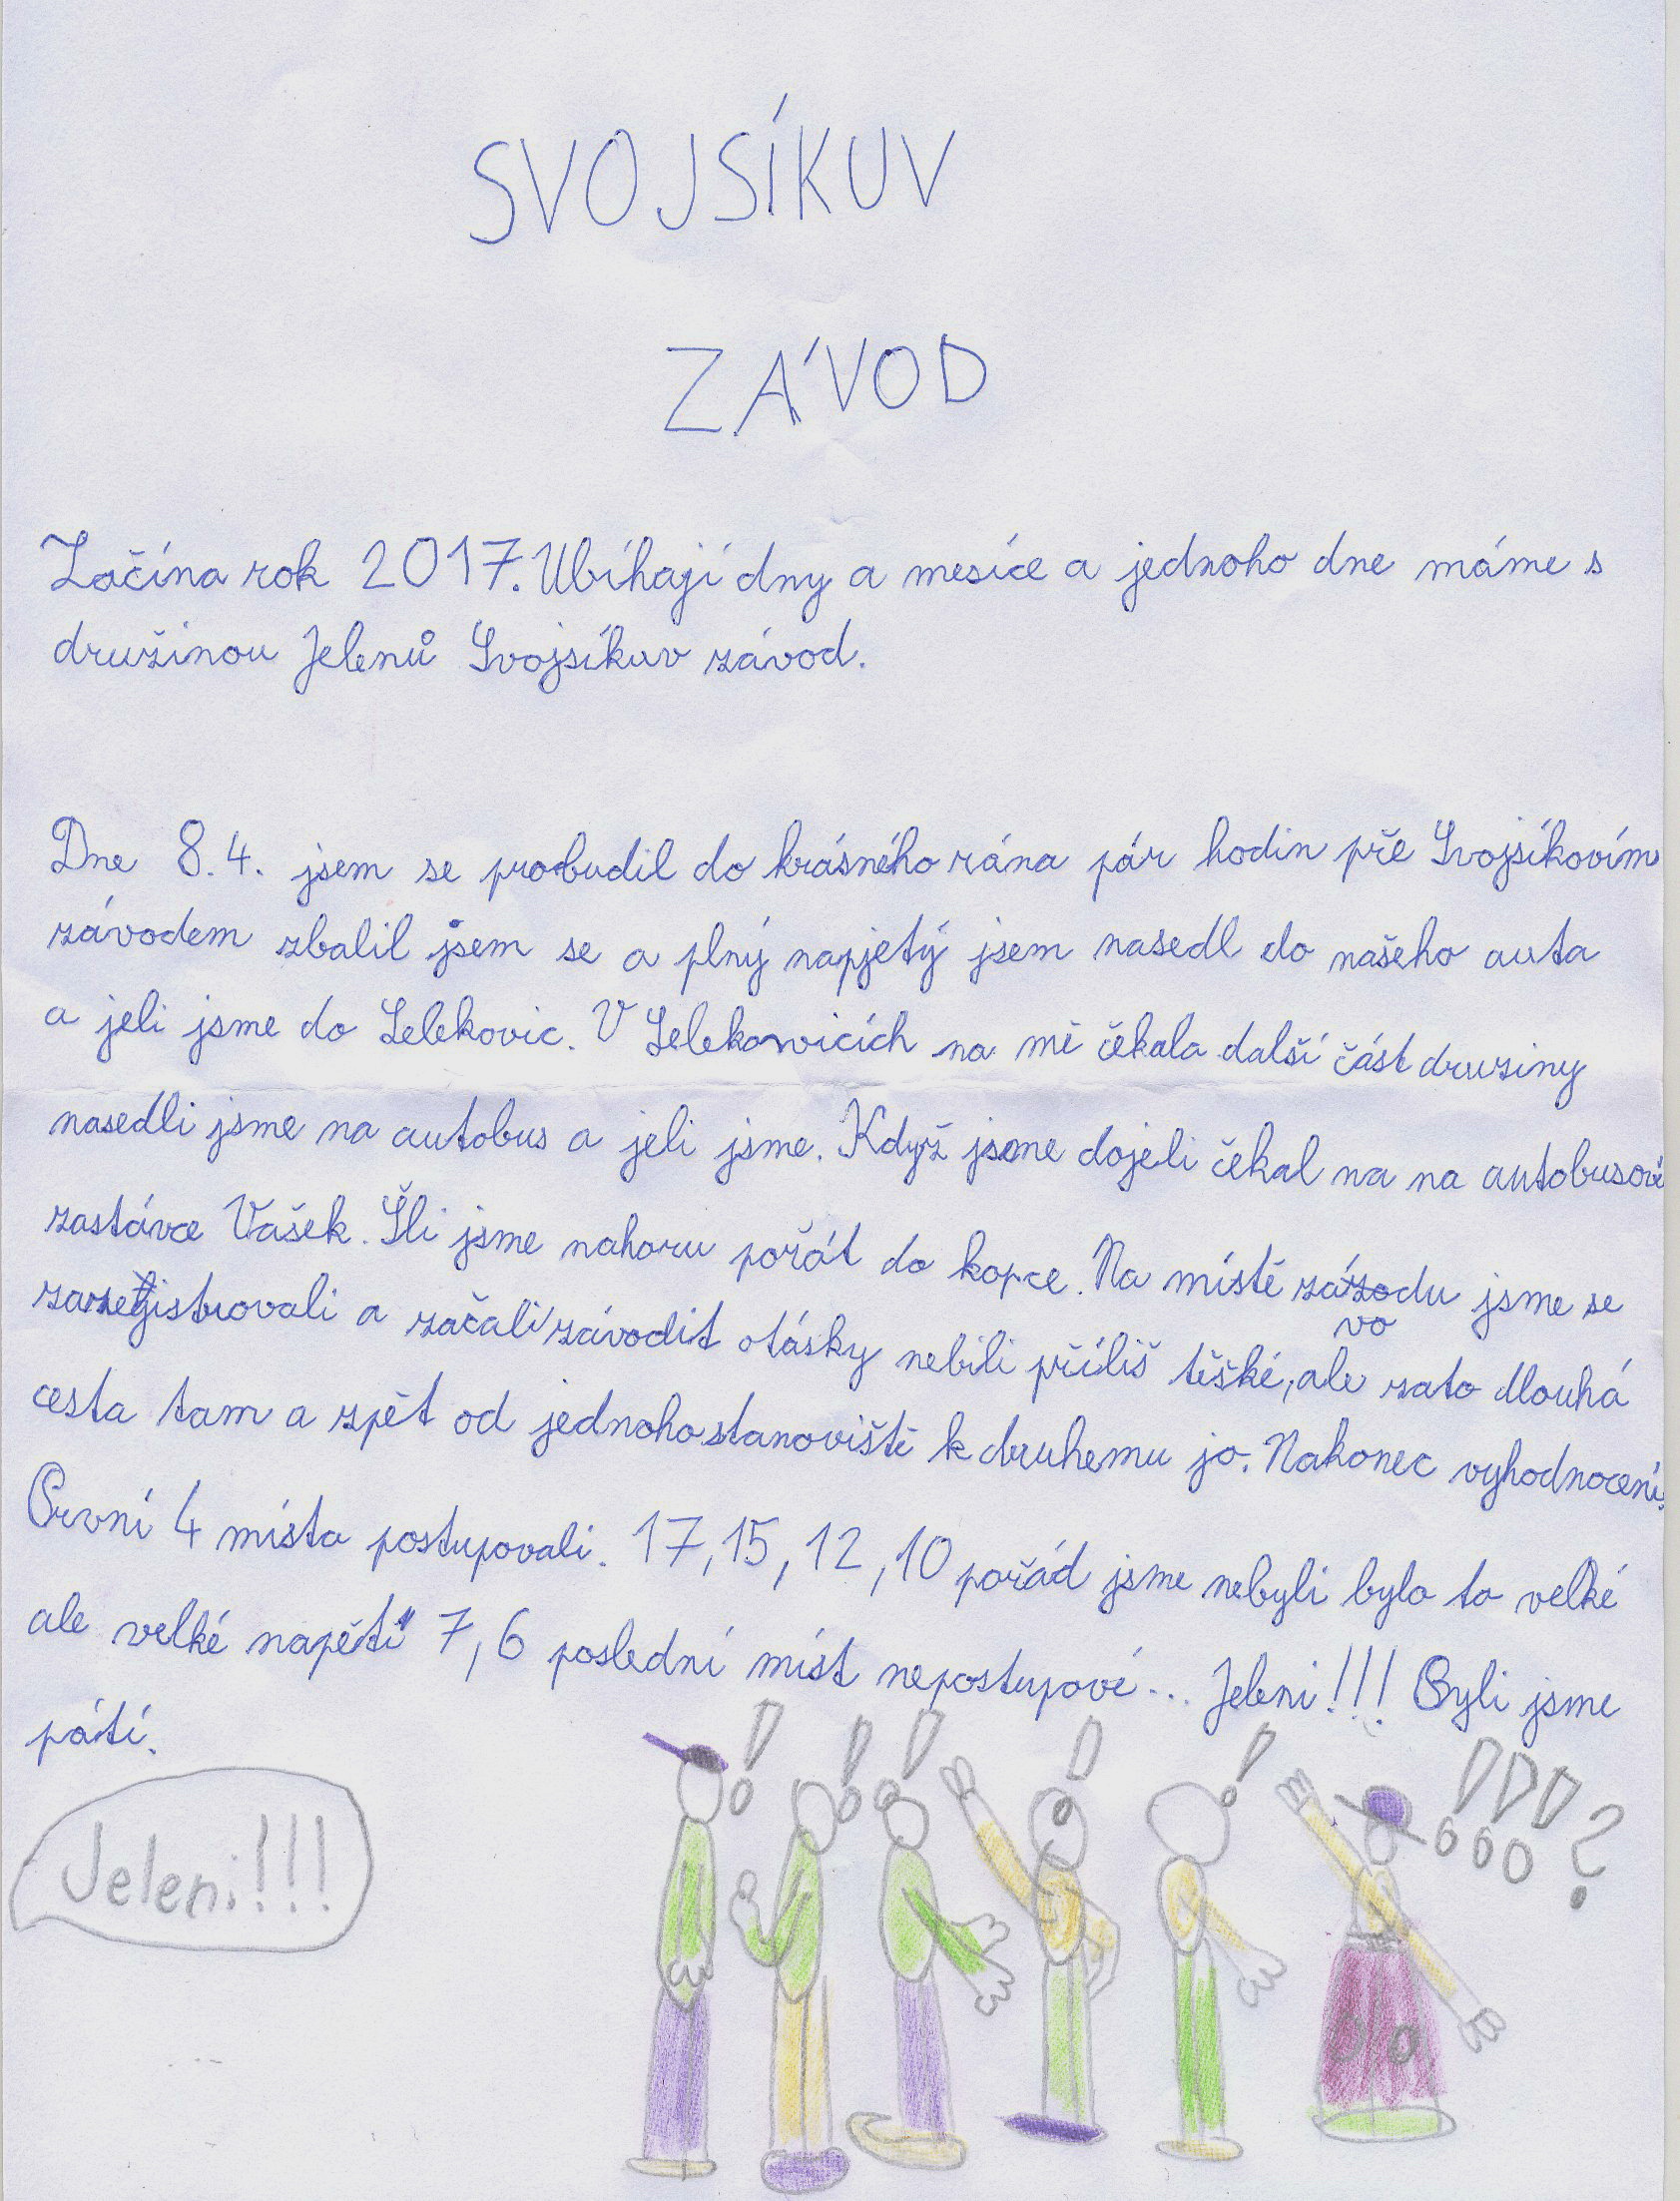 SVOJSÍKUV
ZÁVOD
Začína rok 2017. Ubíhají dny a mesíce a jednoho dne máme s
družinou Jelenů Svojsíkuv závod.
Dne 8.4. jsem se probudil do krásného rána pár hodin pře Svojsíkovím
závodem zbalil jsem se a plný napjetý jsem nasedl do našeho auta
a jeli jsme do Lelekovic. V Lelekovicích na mě čekala další část druziny
nasedli jsme na autobus a jeli jsme. Když jsme dojeli čekal na na autobusové
zastávce Vašek. Šli jsme nahoru pořát do kopce. Na místě závodu jsme se
zaregistrovali a začali závodit otásky nebili příliš těšké, ale zato dlouhá
cesta tam a zpět od jednoho stanoviště k druhemu jo. Nakonec vyhodnocení.
První 4 místa postupovali. 17, 15, 12, 10 pořád jsme nebyli bylo to velké
ale velké napětí 7, 6 poslední míst nepostupové... Jeleni!!! Byli jsme
pátí.
Jeleni!!!